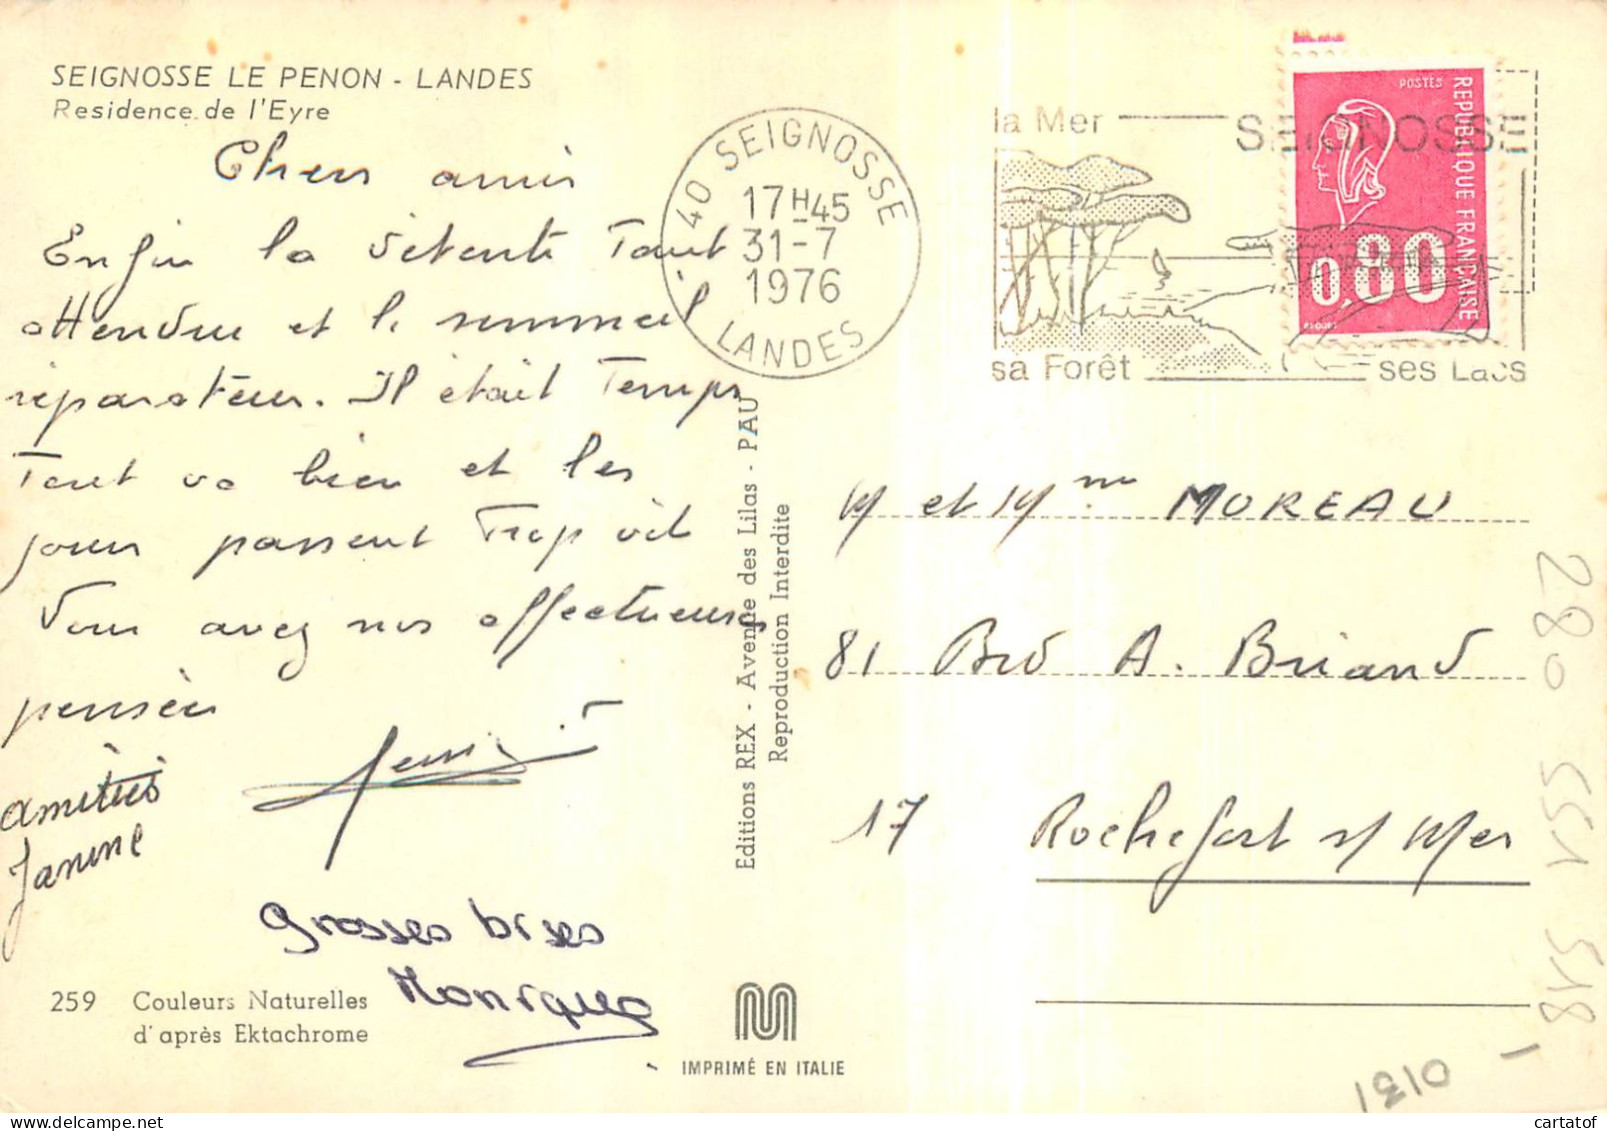 SEIGNOSSE LE PENON - LANDES
Residence de l'Eyre
Chers amis
Enfin la détente Tant
attendue et le sommeil
réparateur. Il était Temps
Tout va bien et les
jours passent Trop vite
Vous avez nos affectueuses
pensées
amitiés
Janine
Grosses bises
Monique
259 Couleurs Naturelles
d'après Ektachrome
Editions REX - Avenue des Lilas - PAU
Reproduction Interdite
IMPRIMÉ EN ITALIE
40 SEIGNOSSE
17H45
31-7
1976
LANDES
la Mer SEIGNOSSE
sa Forêt ses Lacs
POSTES
REPUBLIQUE FRANÇAISE
0,80
M et Mme MOREAU
81 Bvd A. Briand
17 Rochefort s/ Mer
280 551 518
0131
cartatof